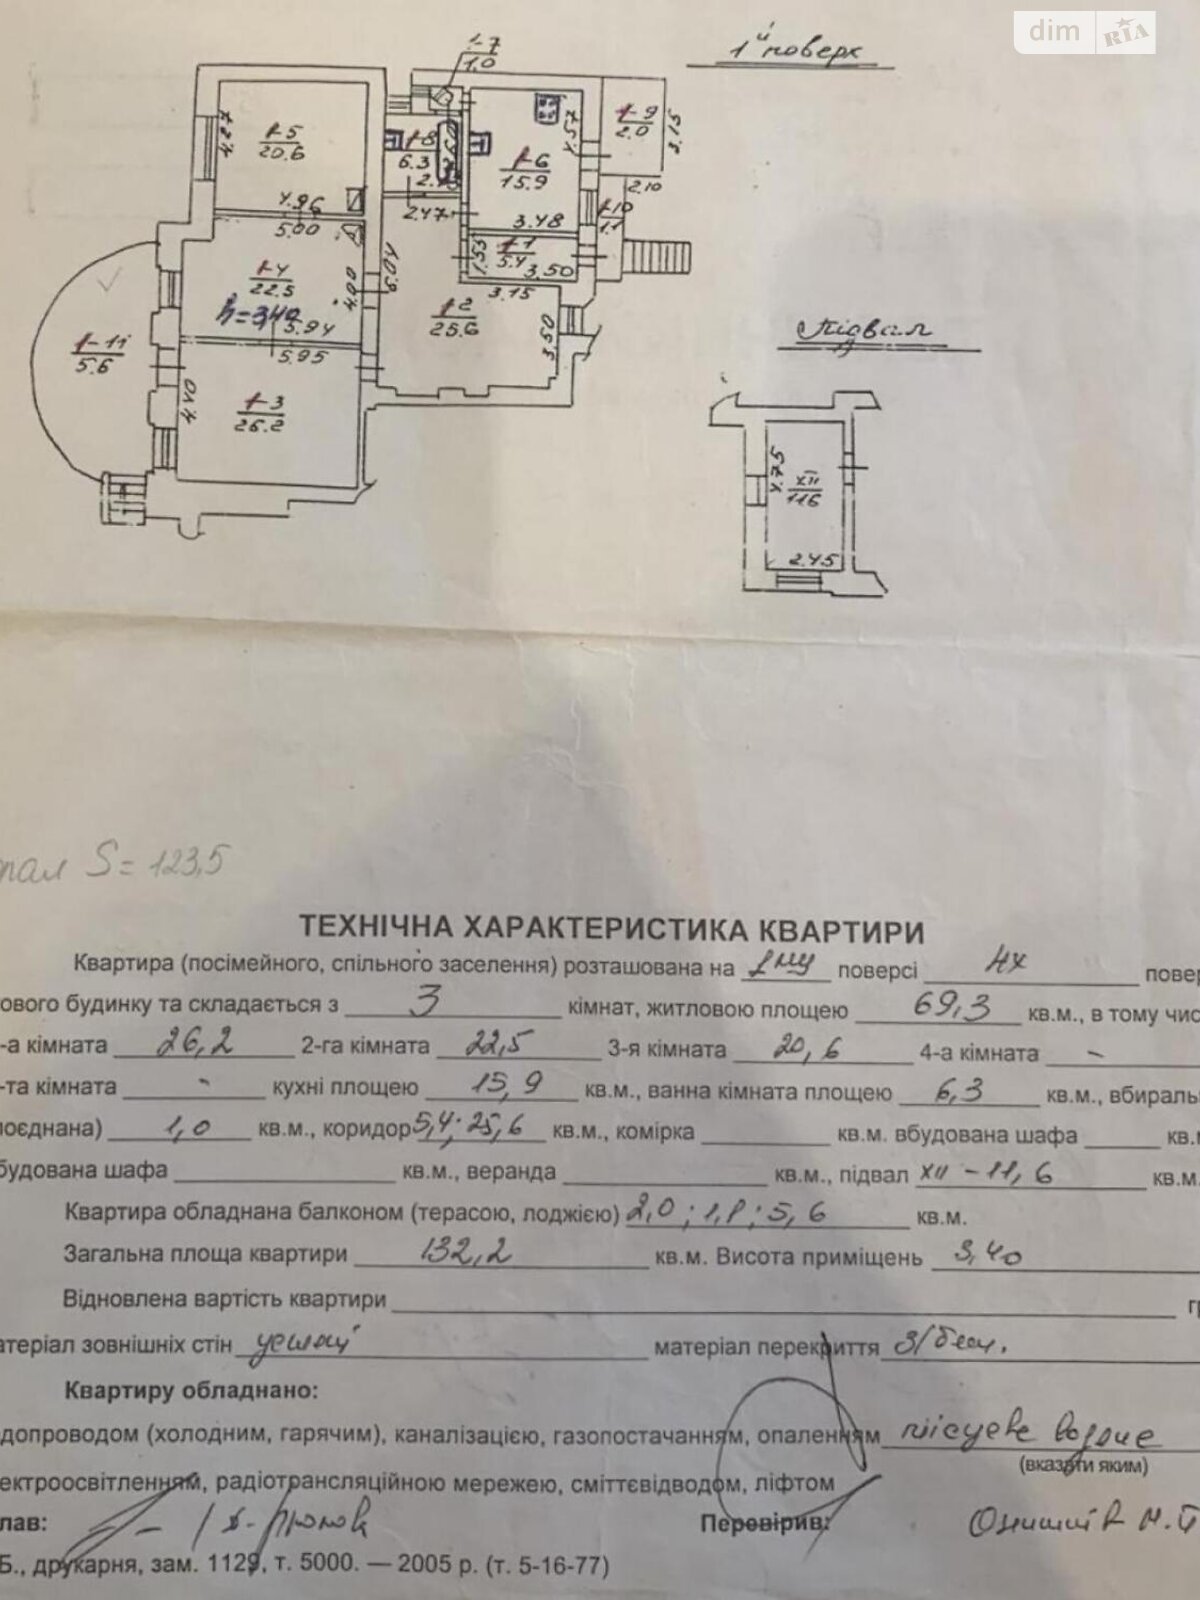 dim RIA
1й поверх
1-7
1.0
1-5
20.6
4.27
4.96
1-8
6.3
1-6
15.9
4.57
3.48
1-9
2.0
3.15
2.10
1-10
1.1
5.00
2.47
1-1
5.4
1.53
3.50
3.15
1-4
22.5
h=3,40
4.00
5.94
1-2
25.6
3.50
1-11
5.6
5.95
1-3
26.2
4.40
Підвал
4.75
XII
11.6
2.45
S=123,5
ТЕХНІЧНА ХАРАКТЕРИСТИКА КВАРТИРИ
Квартира (посімейного, спільного заселення) розташована на 1му поверсі 4х повер
ового будинку та складається з 3 кімнат, житловою площею 69,3 кв.м., в тому чис
-а кімната 26,2 2-га кімната 22,5 3-я кімната 20,6 4-а кімната -
-та кімната - кухні площею 15,9 кв.м., ванна кімната площею 6,3 кв.м., вбираль
поєднана) 1,0 кв.м., коридор 5,4; 25,6 кв.м., комірка кв.м. вбудована шафа кв.м
будована шафа кв.м., веранда кв.м., підвал XII - 11,6 кв.м.
Квартира обладнана балконом (терасою, лоджією) 2,0; 1,1; 5,6 кв.м.
Загальна площа квартири 132,2 кв.м. Висота приміщень 3,40
Відновлена вартість квартири г
атеріал зовнішніх стін матеріал перекриття
Квартиру обладнано:
допроводом (холодним, гарячим), каналізацією, газопостачанням, опаленням місцеве водяне
(вказати яким)
ектроосвітленням, радіотрансляційною мережею, сміттєвідводом, ліфтом
лав: Перевірив:
Б., друкарня, зам. 1129, т. 5000. — 2005 р. (т. 5-16-77)